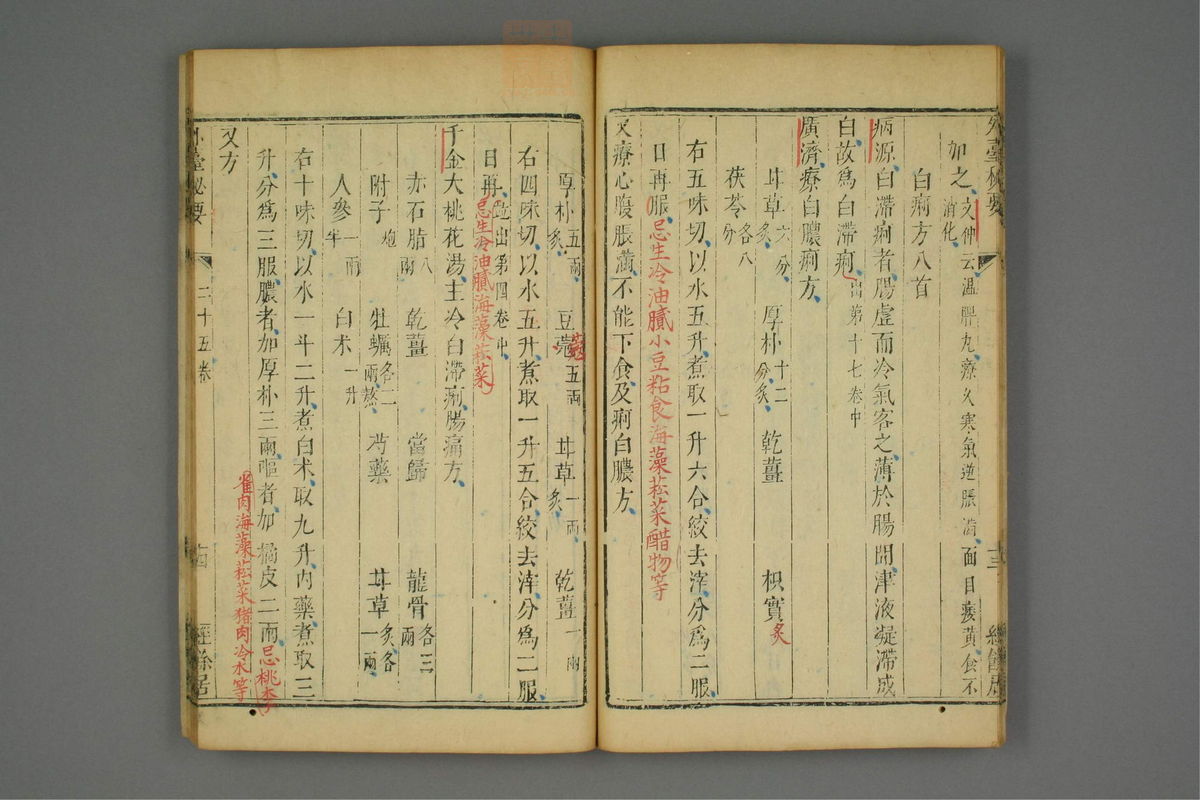 加之文仲云温脾丸療久寒氣逆脹滿面目痿黄食不消化
白痢方八首
病源白滯痢者腸虚而冷氣客之薄於腸間津液凝滯成
白故爲白滯痢出第十七卷中
廣濟療白膿痢方
甘草六分炙 厚朴十二分炙 乾薑 枳實炙
茯苓各八分
右五味切以水五升煮取一升六合絞去滓分爲二服
日再服忌生冷油膩小豆粘食海藻菘菜醋物等
又療心腹脹滿不能下食及痢白膿方
厚朴五兩炙 豆蔻五兩 甘草一兩炙 乾薑一兩
右四味切以水五升煮取一升五合絞去滓分爲二服
日再並出第四卷中忌生冷油膩海藻菘菜
千金大桃花湯主冷白滯痢腸痛方
赤石脂八兩 乾薑 當歸 龍骨各三兩
附子炮 牡蠣各二兩熬 芍藥 甘草炙各一兩
人參一兩半 白术一升
右十味切以水一斗二升煮白术取九升内藥煮取三
升分爲三服膿者加厚朴三兩嘔者加橘皮二兩忌桃李
雀肉海藻菘菜猪肉冷水等
又方
外臺秘要 二十五卷 十四 經餘居